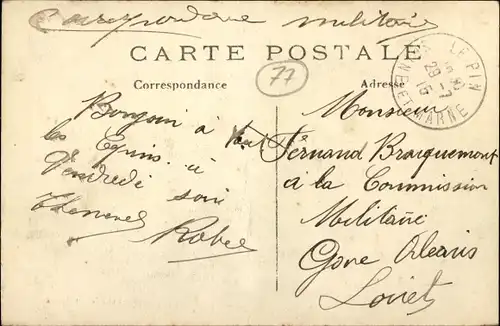 Correspondance militaire
CARTE POSTALE
Correspondance
Adresse
77
LE PIN
SEINE ET MARNE
Bonjour à
les
à
Vendredi soir
Robec
Monsieur
Fernand Bracquemont
à la Commission
Militaire
Gare Orleans
Loiret